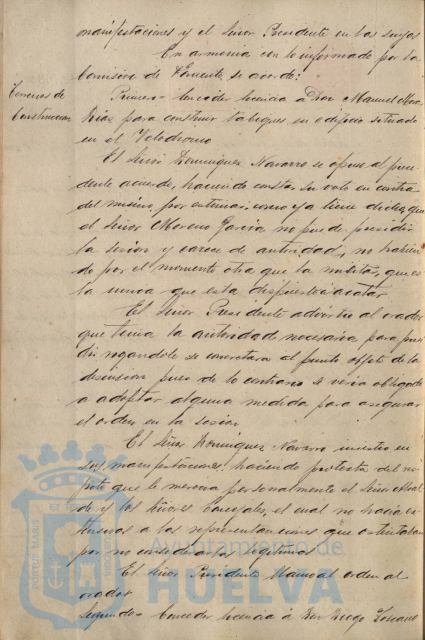 manifestaciones y el Señor Presidente en las suyas
En armonia con lo informado por la
Comision de Fomento se acordo:
Licencias de
Construccion
Primero Conceder licencia a Don Manuel Mora
Rias para construir tabiques en edificio situado
en el Velodromo
El Señor Dominguez Navarro se opuso al prece
dente acuerdo, haciendo constar su voto en contra
del mismo por estimar, como ya tiene dicho, que
el Señor Moreno Garcia no puede presidir
la sesion y carece de autoridad, no habien
do por el momento otra que la militar, que es
la unica que esta dispuesto a acatar
El Señor Presidente advirtio al orador
que tenia la autoridad necesaria para presi
dir rogandole se concretara al punto objeto de la
discusion pues de lo contrario se veria obligado
a adoptar alguna medida para asegurar
el orden en la sesion
El Señor Dominguez Navarro insistio en
sus manifestaciones, haciendo protesta del res
peto que le merecia personalmente el Señor Alcal
de y los Señores Concejales, el cual no hacia ex
tensivo a las representaciones que ostentaban
por no considerarlas legitimas
El Señor Presidente llama al orden al
orador
Segundo Conceder licencia á Don Diego
Ayuntamiento de
HUELVA
PORTUS MARIS